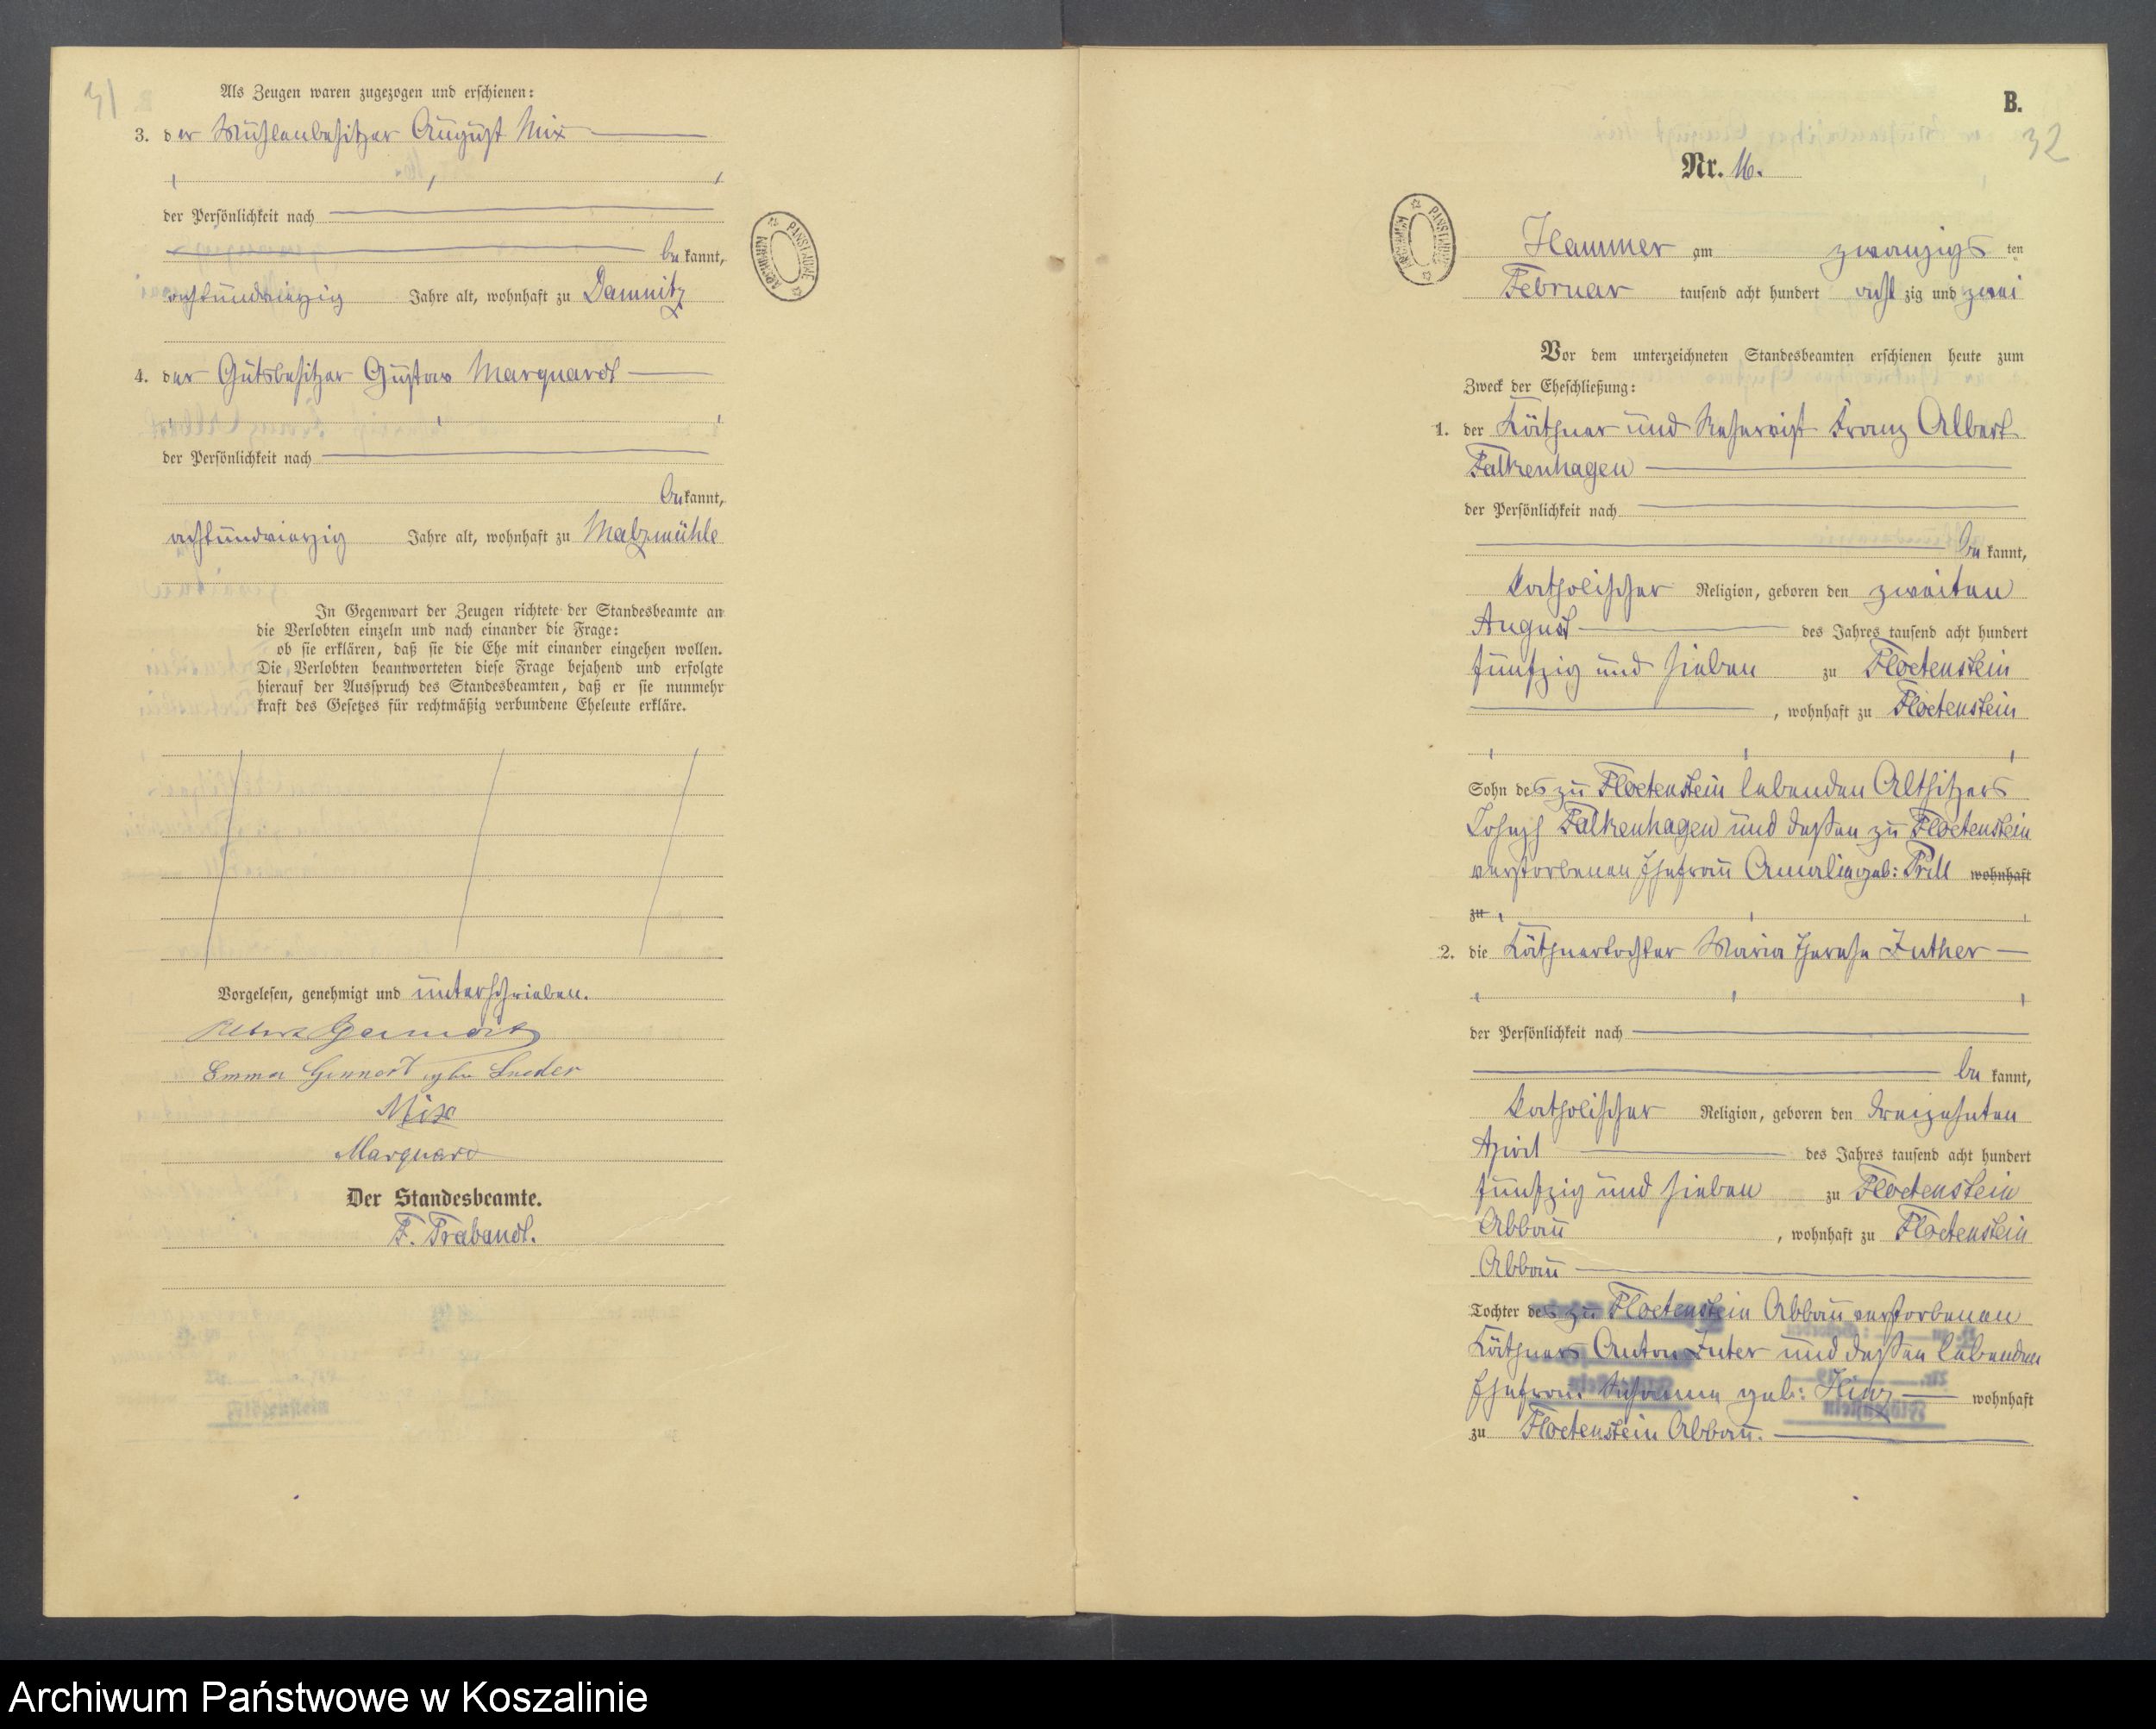 31
Als Zeugen waren zugezogen und erschienen:
3. der Mühlenbesitzer August Mix
der Persönlichkeit nach
bekannt,
achtundvierzig Jahre alt, wohnhaft zu Damnitz
4. der Gutsbesitzer Gustav Marquardt
der Persönlichkeit nach
bekannt,
achtundvierzig Jahre alt, wohnhaft zu Malzmühle
In Gegenwart der Zeugen richtete der Standesbeamte an
die Verlobten einzeln und nach einander die Frage:
ob sie erklären, daß sie die Ehe mit einander eingehen wollen.
Die Verlobten beantworteten diese Frage bejahend und erfolgte
hierauf der Ausspruch des Standesbeamten, daß er sie nunmehr
kraft des Gesetzes für rechtmäßig verbundene Eheleute erkläre.
Vorgelesen, genehmigt und unterschrieben.
Emma
Mix
Marquard
Der Standesbeamte.
F. Trabandt.
ARCHIWUM PAŃSTWOWE
B.
32
Nr. 16.
ARCHIWUM PAŃSTWOWE
Hammer am zwanzigsten
Februar tausend acht hundert achtzig und zwei
Vor dem unterzeichneten Standesbeamten erschienen heute zum
Zweck der Eheschließung:
1. der Käthner und Reservist Franz Albert
Falkenhagen
der Persönlichkeit nach
bekannt,
katholischer Religion, geboren den zweiten
August des Jahres tausend acht hundert
fünfzig und sieben zu Floetenstein
, wohnhaft zu Floetenstein
Sohn des zu Floetenstein lebenden Altsitzers
Joseph Falkenhagen und dessen zu Floetenstein
verstorbenen Ehefrau Amalie geb: Prill wohnhaft
zu
2. die Käthnertochter Maria Therese Juther
der Persönlichkeit nach
bekannt,
katholischer Religion, geboren den dreizehnten
April des Jahres tausend acht hundert
fünfzig und sieben zu Floetenstein
Abbau , wohnhaft zu Floetenstein
Abbau
Tochter des zu Floetenstein Abbau verstorbenen
Käthners Anton Juter und dessen lebenden
Ehefrau Susanna geb: Hinz wohnhaft
zu Floetenstein Abbau.
Archiwum Państwowe w Koszalinie